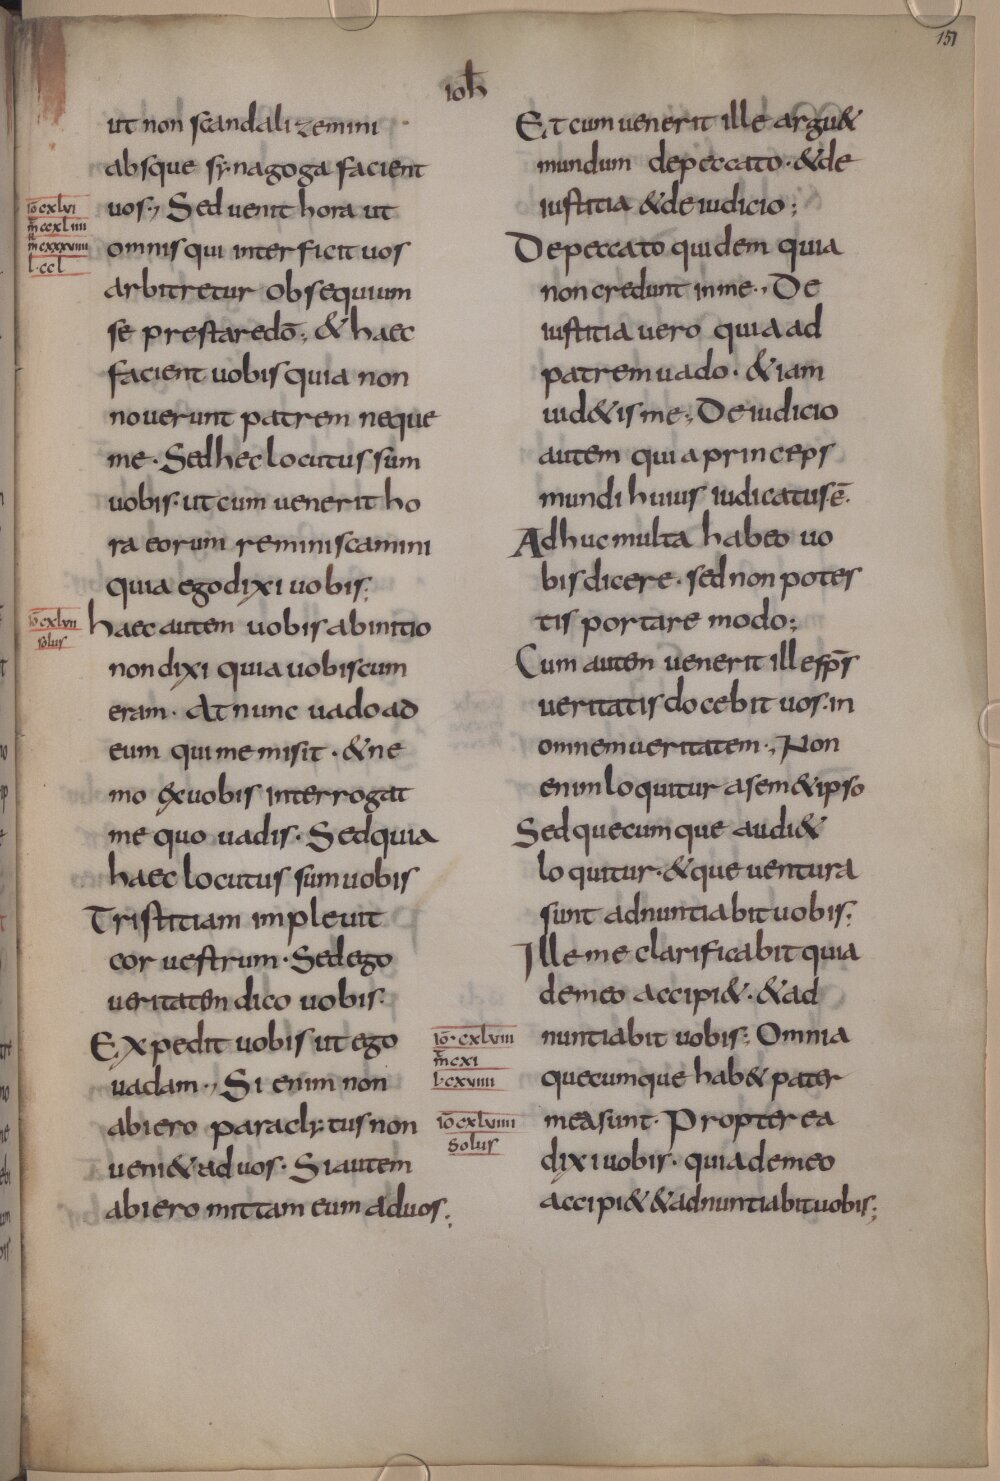 151
ioħ
ut non scandalizemini
absque synagoga facient
uos., Sed uenit hora ut
omnis qui interficit uos
arbitretur obsequium
se prestare dō; & haec
facient uobis quia non
nouerunt patrem neque
me · Sed hec locutus sum
uobis · ut cum uenerit ho
ra eorum reminiscamini
quia ego dixi uobis;
haec autem uobis ab initio
non dixi quia uobiscum
eram · At nunc uado ad
eum qui me misit · & ne
mo ex uobis interrogat
me quo uadis · Sed quia
haec locutus sum uobis
Tristitiam impleuit
cor uestrum · Sed ego
ueritatem dico uobis:
Expedit uobis ut ego
uadam., Si enim non
abiero paraclytus non
ueni& ad uos · Si autem
abiero mittam eum ad uos;
iō cxlvi
m̄ ccxliiii
m̄ cxxxviiii
l · ccl
iō cxlvii
solus
Et cum uenerit ille argu&
mundum de peccato · & de
iustitia & de iudicio;
De peccato quidem quia
non credunt in me., De
iustitia uero quia ad
patrem uado · & iam
uid&is me., De iudicio
autem quia princeps
mundi huius iudicatus ē.
Adhuc multa habeo uo
bis dicere · sed non potes
tis portare modo;
Cum autem uenerit ille sp̄s
ueritatis docebit uos · in
omnem ueritatem., Non
enim loquitur a sem&ipso
Sed quecumque audi&
loquitur · & que uentura
sunt adnuntiabit uobis;
Ille me clarificabit quia
de meo accipi& · & ad
nuntiabit uobis; Omnia
quecumque hab& pater
mea sunt · Propterea
dixi uobis · quia de meo
accipi& & adnuntiabit uobis;
iō · cxlviii
m̄ cxi
l · cxviiii
iō cxlviiii
Solus